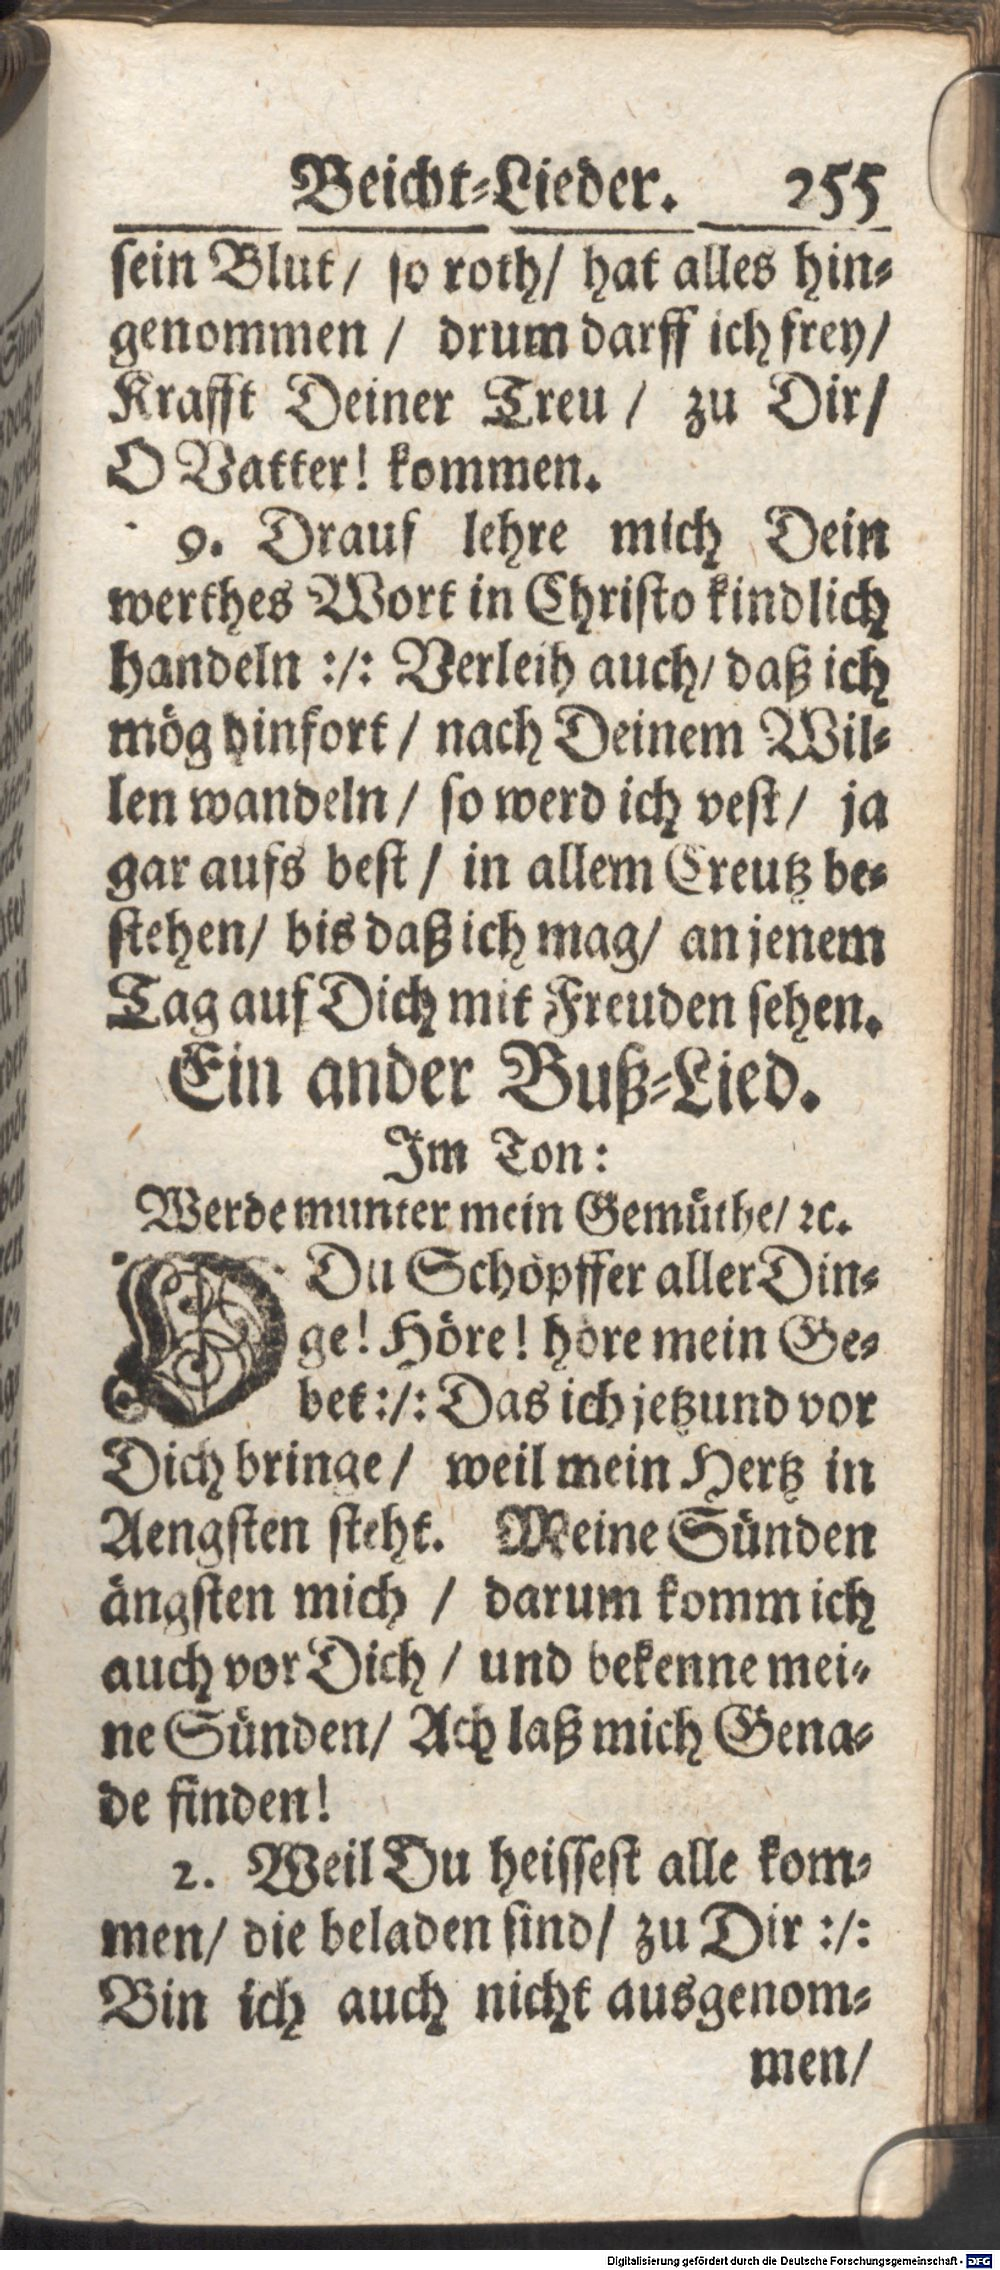 Beicht-Lieder. 255
sein Blut/ so roth/ hat alles hin-
genommen / drum darff ich frey/
Krafft Deiner Treu / zu Dir/
O Vatter! kommen.
9. Drauf lehre mich Dein
werthes Wort in Christo kindlich
handeln :/: Verleih auch/ daß ich
mög hinfort / nach Deinem Wil-
len wandeln / so werd ich vest/ ja
gar aufs best / in allem Creutz be-
stehen/ bis daß ich mag/ an jenem
Tag auf Dich mit Freuden sehen.
Ein ander Buß-Lied.
Im Ton:
Werde munter mein Gemüthe/ ꝛc.
O Du Schöpffer aller Din-
ge! Höre! höre mein Ge-
bet :/: Das ich jetzund vor
Dich bringe / weil mein Hertz in
Aengsten steht. Meine Sünden
ängsten mich / darum komm ich
auch vor Dich / und bekenne mei-
ne Sünden/ Ach laß mich Gena-
de finden!
2. Weil Du heissest alle kom-
men/ die beladen sind/ zu Dir :/:
Bin ich auch nicht ausgenom-
men/
Digitalisierung gefördert durch die Deutsche Forschungsgemeinschaft - DFG